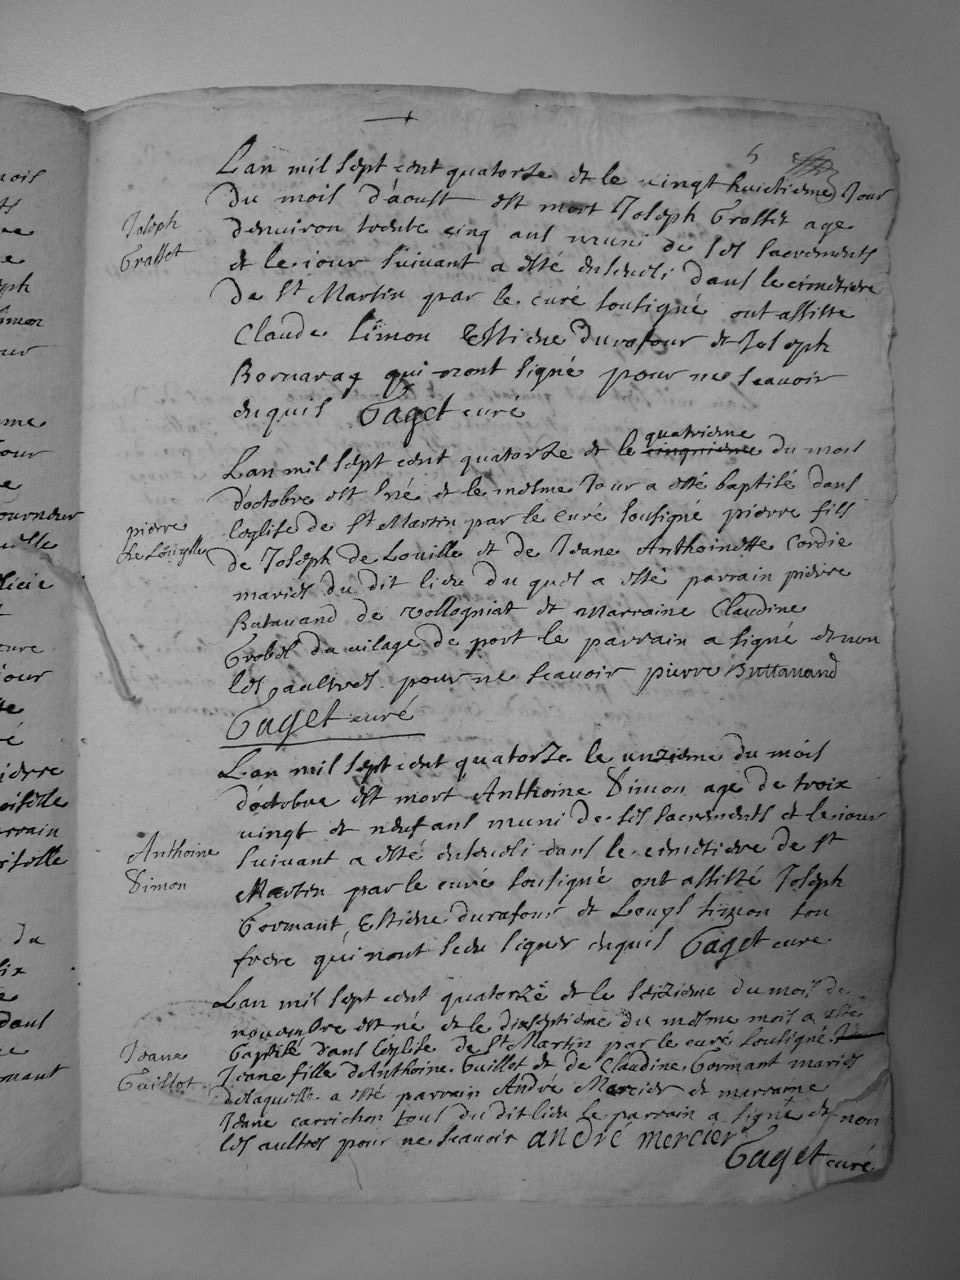 5
Lan mil sept cent quatorze et le vingt huictieme Jour
Du mois d'aoust est mort Joseph Grosset age
Joseph
Grasset
denuiron trente cinq ans muni de ses sacrements
et le iour suiuant a esté enseueli dans le cimetiere
De St Martin par le curé sousigné ont assiste
Claude Simon Estiene Durafour et Joseph
qui nont signé pour ne scauoir
enquis Gaget curé
Lan mil sept cent quatorze et le cinquieme quatrieme du mois
d'octobre est né et le mesme Jour a esté baptisé dans
pierre
De Louylle
l'eglise de St Martin par le Curé sousigné pierre fils
de Joseph de Louille et de Jeane Anthoinette Cordie
mariés du dit lieu du quel a esté parrain pierre
Butauand de Vollogniat et Marraine Claudine
Grobel du uilage de port le parrain a signé et non
les aultres pour ne scauoir pierre Buttauand
Gaget curé
Lan mil sept cent quatorze le unzieme du mois
d'octobre est mort Anthoine Simon age de troix
vingt et neuf ans muni de ses sacrements et le iour
Anthoine
Simon
suiuant a esté enseueli dans le cimetiere de St
Martin par le curé sousigné ont assisté Joseph
Germant, Estiene durafour et Louys simon son
frere qui nont sceu signer enquis Gaget curé
Lan mil sept cent quatorze et le seizieme du mois de
nouembre est né et le dixseptieme du mesme mois a esté
Jeane
Guillot
baptisé dans l'eglise de St Martin par le curé sousigné
Jeane fille d'Anthoine Guillot et de Claudine Germant mariés
delaquelle a esté parrain André Mercier et marraine
Jeane carrichon tous du dit lieu le parrain a signé et non
les aultres pour ne scauoir andré mercier
Gaget curé